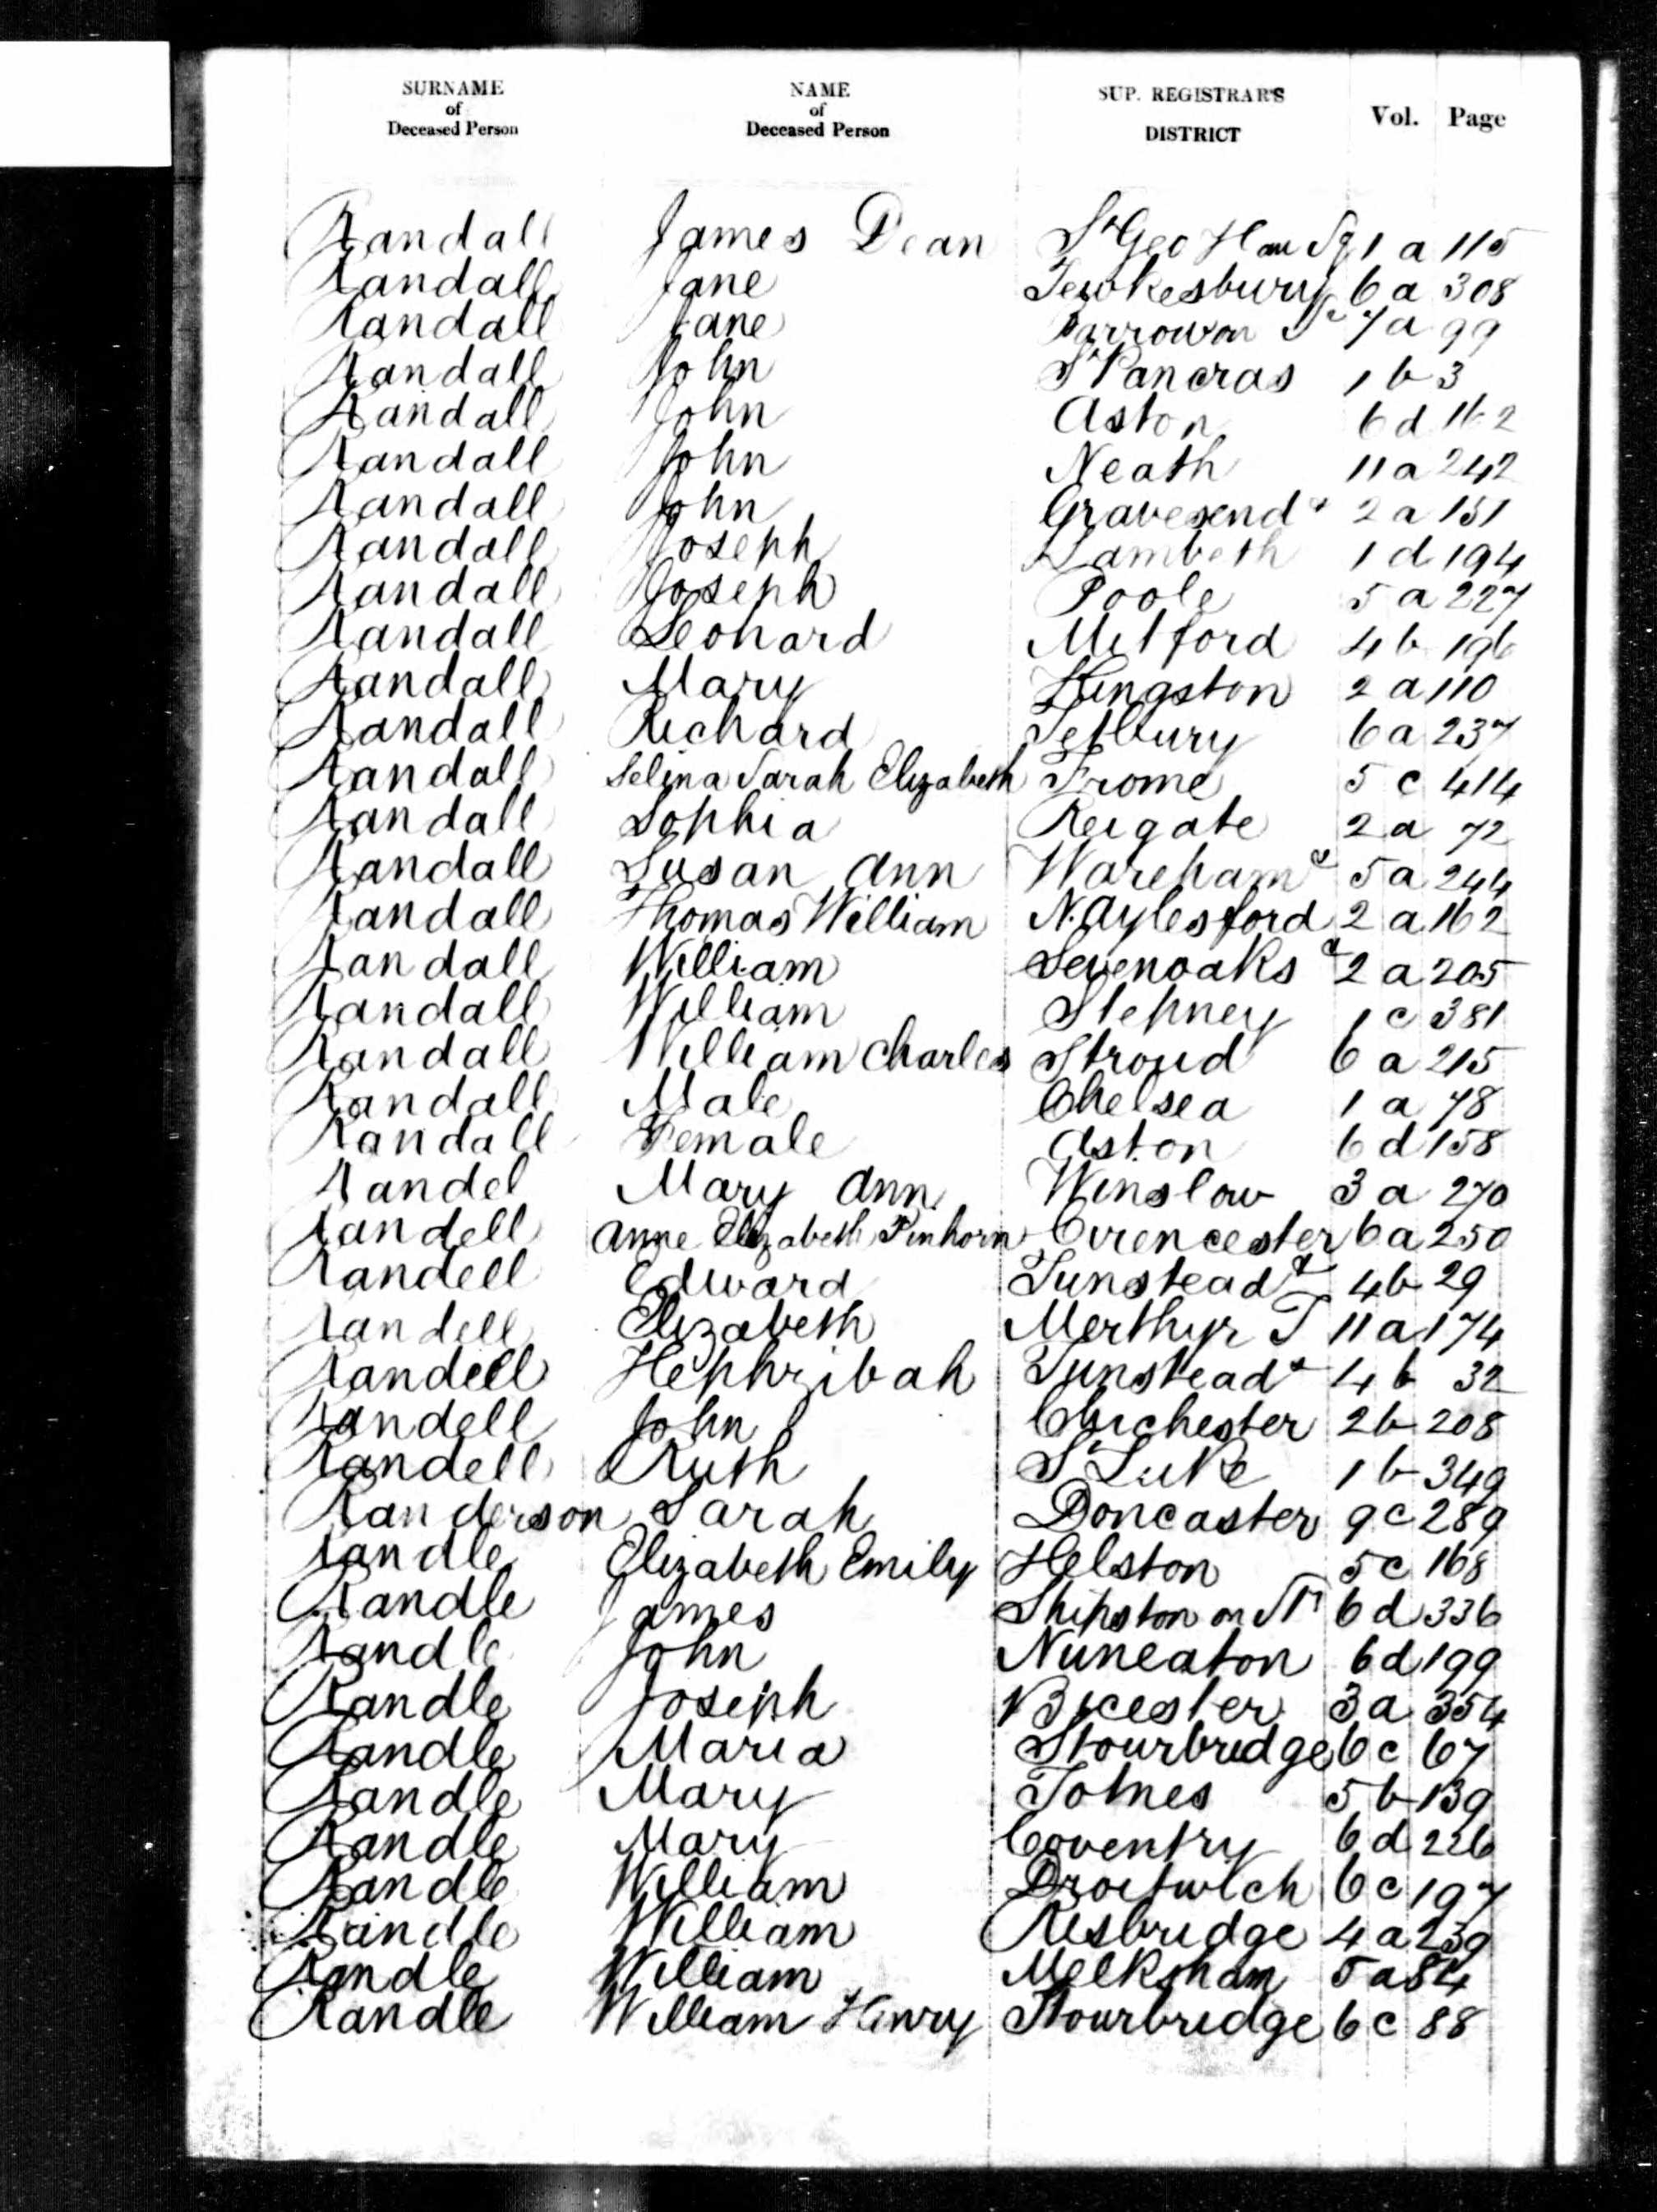 SURNAME of Deceased Person NAME of Deceased Person SUP. REGISTRAR'S DISTRICT Vol. Page
Randall James Dean St Geo Han Sq 1 a 115
Randall Jane Tewkesbury 6 a 308
Randall Jane Barrow on S 7 a 99
Randall John St Pancras 1 b 3
Randall John Aston 6 d 162
Randall John Neath 11 a 242
Randall John Gravesend 2 a 151
Randall Joseph Lambeth 1 d 194
Randall Joseph Poole 5 a 227
Randall Leonard Mitford 4 b 196
Randall Mary Kingston 2 a 110
Randall Richard Tetbury 6 a 237
Randall Selina Sarah Elizabeth Frome 5 c 414
Randall Sophia Reigate 2 a 72
Randall Susan Ann Wareham 5 a 244
Randall Thomas William N. Aylesford 2 a 162
Randall William Sevenoaks 2 a 205
Randall William Stepney 1 c 381
Randall William Charles Stroud 6 a 215
Randall Male Chelsea 1 a 78
Randall Female Aston 6 d 158
Randel Mary Ann Winslow 3 a 270
Randell Anne Elizabeth Pinhorn Cirencester 6 a 250
Randell Edward Tunstead 4 b 29
Randell Elizabeth Merthyr T 11 a 174
Randell Hephzibah Tunstead 4 b 32
Randell John Chichester 2 b 208
Randell Ruth St Luke 1 b 349
Randerson Sarah Doncaster 9 c 289
Randle Elizabeth Emily Helston 5 c 168
Randle James Shipston on Sr 6 d 336
Randle John Nuneaton 6 d 199
Randle Joseph Bicester 3 a 354
Randle Maria Stourbridge 6 c 67
Randle Mary Totnes 5 b 139
Randle Mary Coventry 6 d 226
Randle William Droitwich 6 c 197
Randle William Risbridge 4 a 239
Randle William Melksham 5 a 84
Randle William Henry Stourbridge 6 c 88